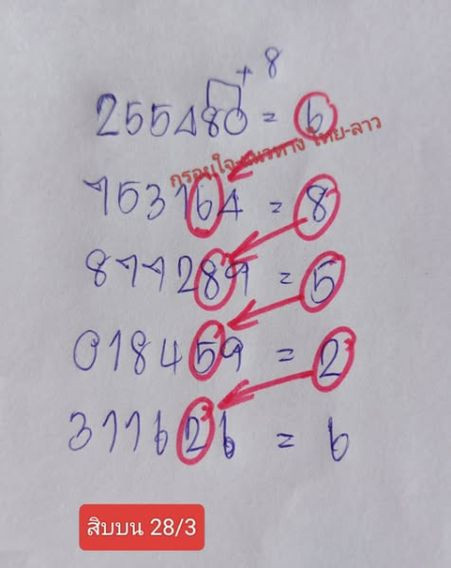 + 8
255480 = 6
กรอบใจ แนวทาง ไทย-ลาว
753164 = 8
877289 = 5
018459 = 2
311626 = 6
สิบบน 28/3